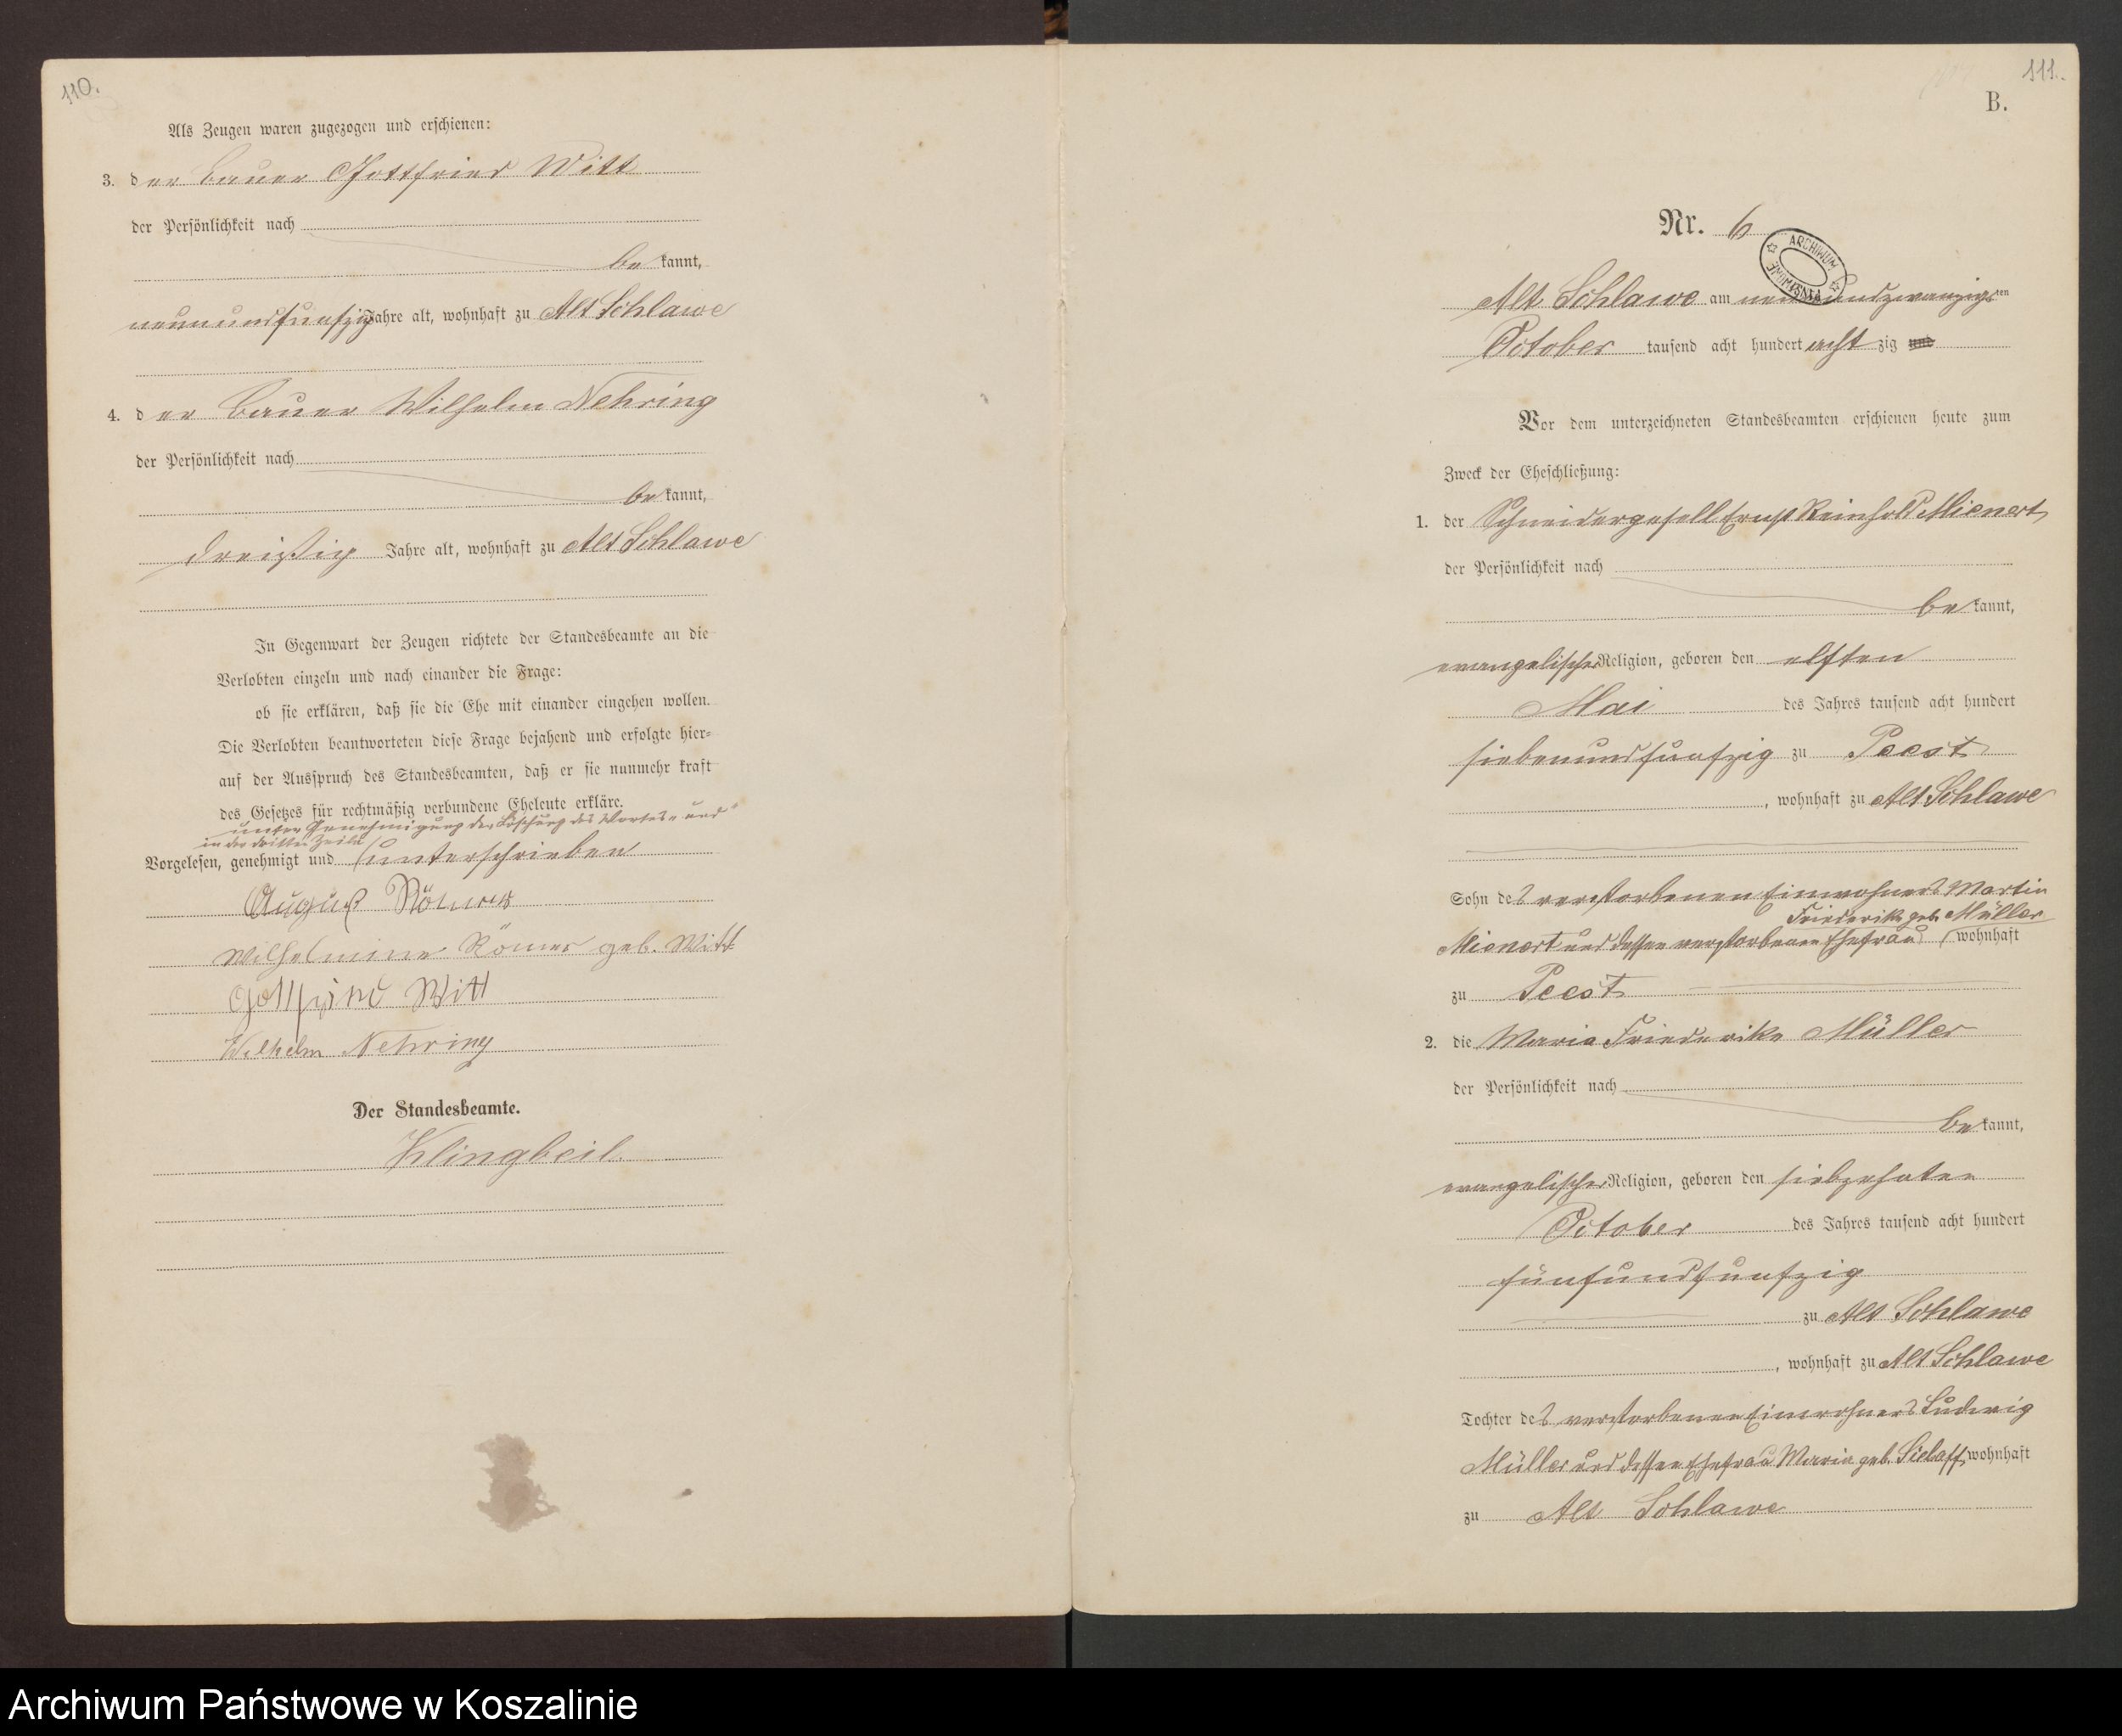 110.
Als Zeugen waren zugezogen und erschienen:
3. der Bauer Gottfried Witt
der Persönlichkeit nach
be kannt,
neunundfunfzig Jahre alt, wohnhaft zu Alt Schlawe
4. der Bauer Wilhelm Nehring
der Persönlichkeit nach
be kannt,
dreißig Jahre alt, wohnhaft zu Alt Schlawe
In Gegenwart der Zeugen richtete der Standesbeamte an die
Verlobten einzeln und nach einander die Frage:
ob sie erklären, daß sie die Ehe mit einander eingehen wollen.
Die Verlobten beantworteten diese Frage bejahend und erfolgte hier-
auf der Ausspruch des Standesbeamten, daß er sie nunmehr kraft
des Gesetzes für rechtmäßig verbundene Eheleute erkläre.
unter Genehmigung der Löschung des Wortes „und“
in der dritten Zeile
Vorgelesen, genehmigt und unterschrieben
August Römer
Wilhelmine Römer geb. Witt
Gottfried Witt
Wilhelm Nehring
Der Standesbeamte.
Klingbeil
111.
B.
Nr. 6
ARCHIWUM
Alt Schlawe am neunundzwanzigsten
October tausend acht hundert acht zig und
Vor dem unterzeichneten Standesbeamten erschienen heute zum
Zweck der Eheschließung:
1. der Schneidergesell Ernst Reinhold Mienert
der Persönlichkeit nach
be kannt,
evangelischer Religion, geboren den elften
Mai des Jahres tausend acht hundert
siebenundfunfzig zu Peest
, wohnhaft zu Alt Schlawe
Sohn des verstorbenen Einwohners Martin
Friederike geb. Müller
Mienert und dessen verstorbenen Ehefrau wohnhaft
zu Peest
2. die Maria Friederike Müller
der Persönlichkeit nach
be kannt,
evangelischer Religion, geboren den siebzehnten
October des Jahres tausend acht hundert
fünfundfunfzig
zu Alt Schlawe
, wohnhaft zu Alt Schlawe
Tochter des verstorbenen Einwohners Ludwig
Müller und dessen Ehefrau Maria geb. Sielaff wohnhaft
zu Alt Schlawe
Archiwum Państwowe w Koszalinie